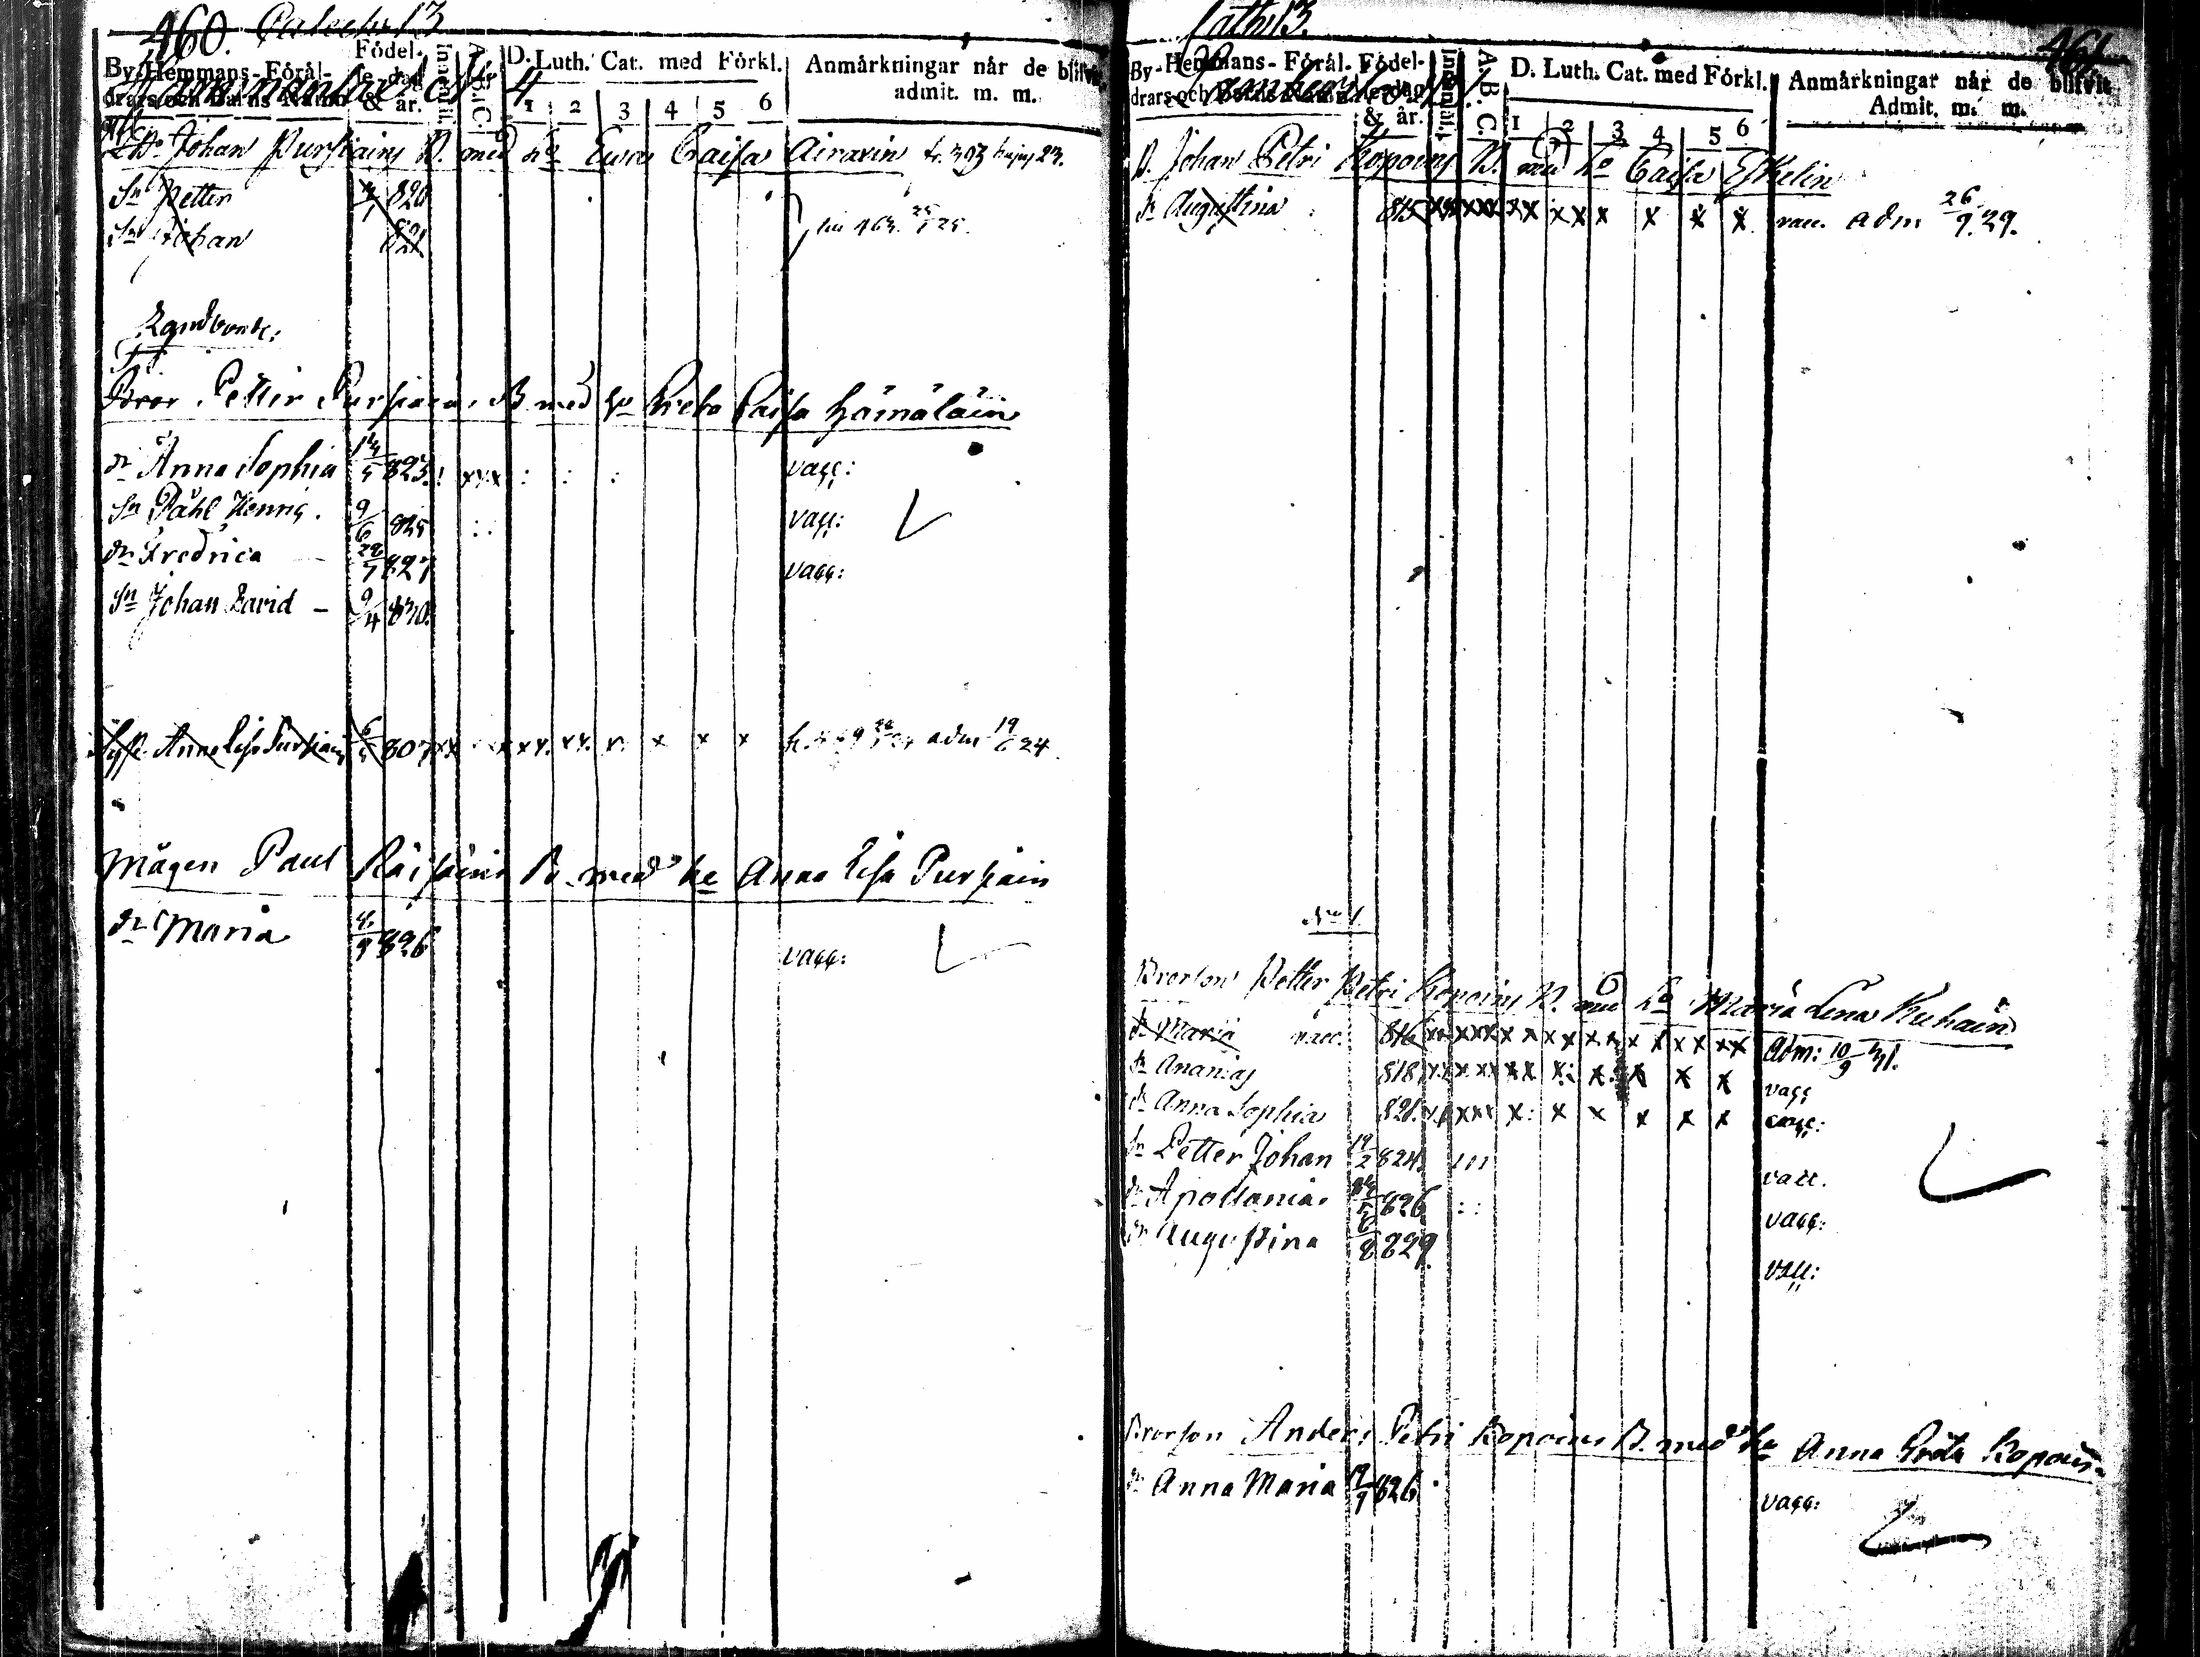 460. Catech: 13
By-Hemmans-Förål-
drars och Barns Namn
Födel-
se dag
& år.
A.B.C.
D. Luth. Cat. med Förkl.
1 2 3 4 5 6
Anmärkningar når de blifvit
admit. m. m.
Johan Purſiains B. med ho Ewa Caiſa Airaxin fr. 303 hujus 23.
Sn Petter 820
Sn Johan 821
463. 25.
Landbonde:
Bror Petter Purſiain B med ho Greta Caiſa Hämäläin
dr Anna Sophia 14/5 823. xxx vacc:
Sn Påhl Henric. 9/6 825 vacc:
dr Fredrica 28/7 827 vacc:
Sn Johan David – 9/4 830.
Syſt. Anna Liſa Purſiain 6/5 807 xx xxx. xx. x. x x x adm 19/6 24
Mågen Paul Räiſäins B. med ho Anna Liſa Purſiain
dr Maria 4/9 826 vacc:
Cath: 13. 461
By-Hemmans-Förål-
drars och Barns Namn
Födel-
se dag
& år.
Innantil.
A.B.C.
D. Luth. Cat. med Förkl.
1 2 3 4 5 6
Anmärkningar når de blifvit
Admit. m. m.
B. Johan Petri Kopoins B. med ho Caiſa Eſkelin
dr Auguſtina 815 xx xxx xx xxx x x x vacc. adm 26/9. 29.
No 1.
Brorſon Petter Petri Kopoins B. med ho Maria Lena Kuhain
dr Maria vacc. 816 xx xxx x x x x x x x x x xx Adm: 10/9 31.
Sn Ananias 818 xx x xx xx x: x. x x x vacc
dr Anna Sophia 821. xx xxx x: x x x x x vacc:
Sn Petter Johan 19/2 824. ııı vacc.
dr Apollonia 826 : : vacc:
dr Auguſtina 6/8 829. vacc:
Brorſon Anders Petri Kopoins B. med ho Anna Greta Kopoin
dr Anna Maria 19/7 826 vacc: